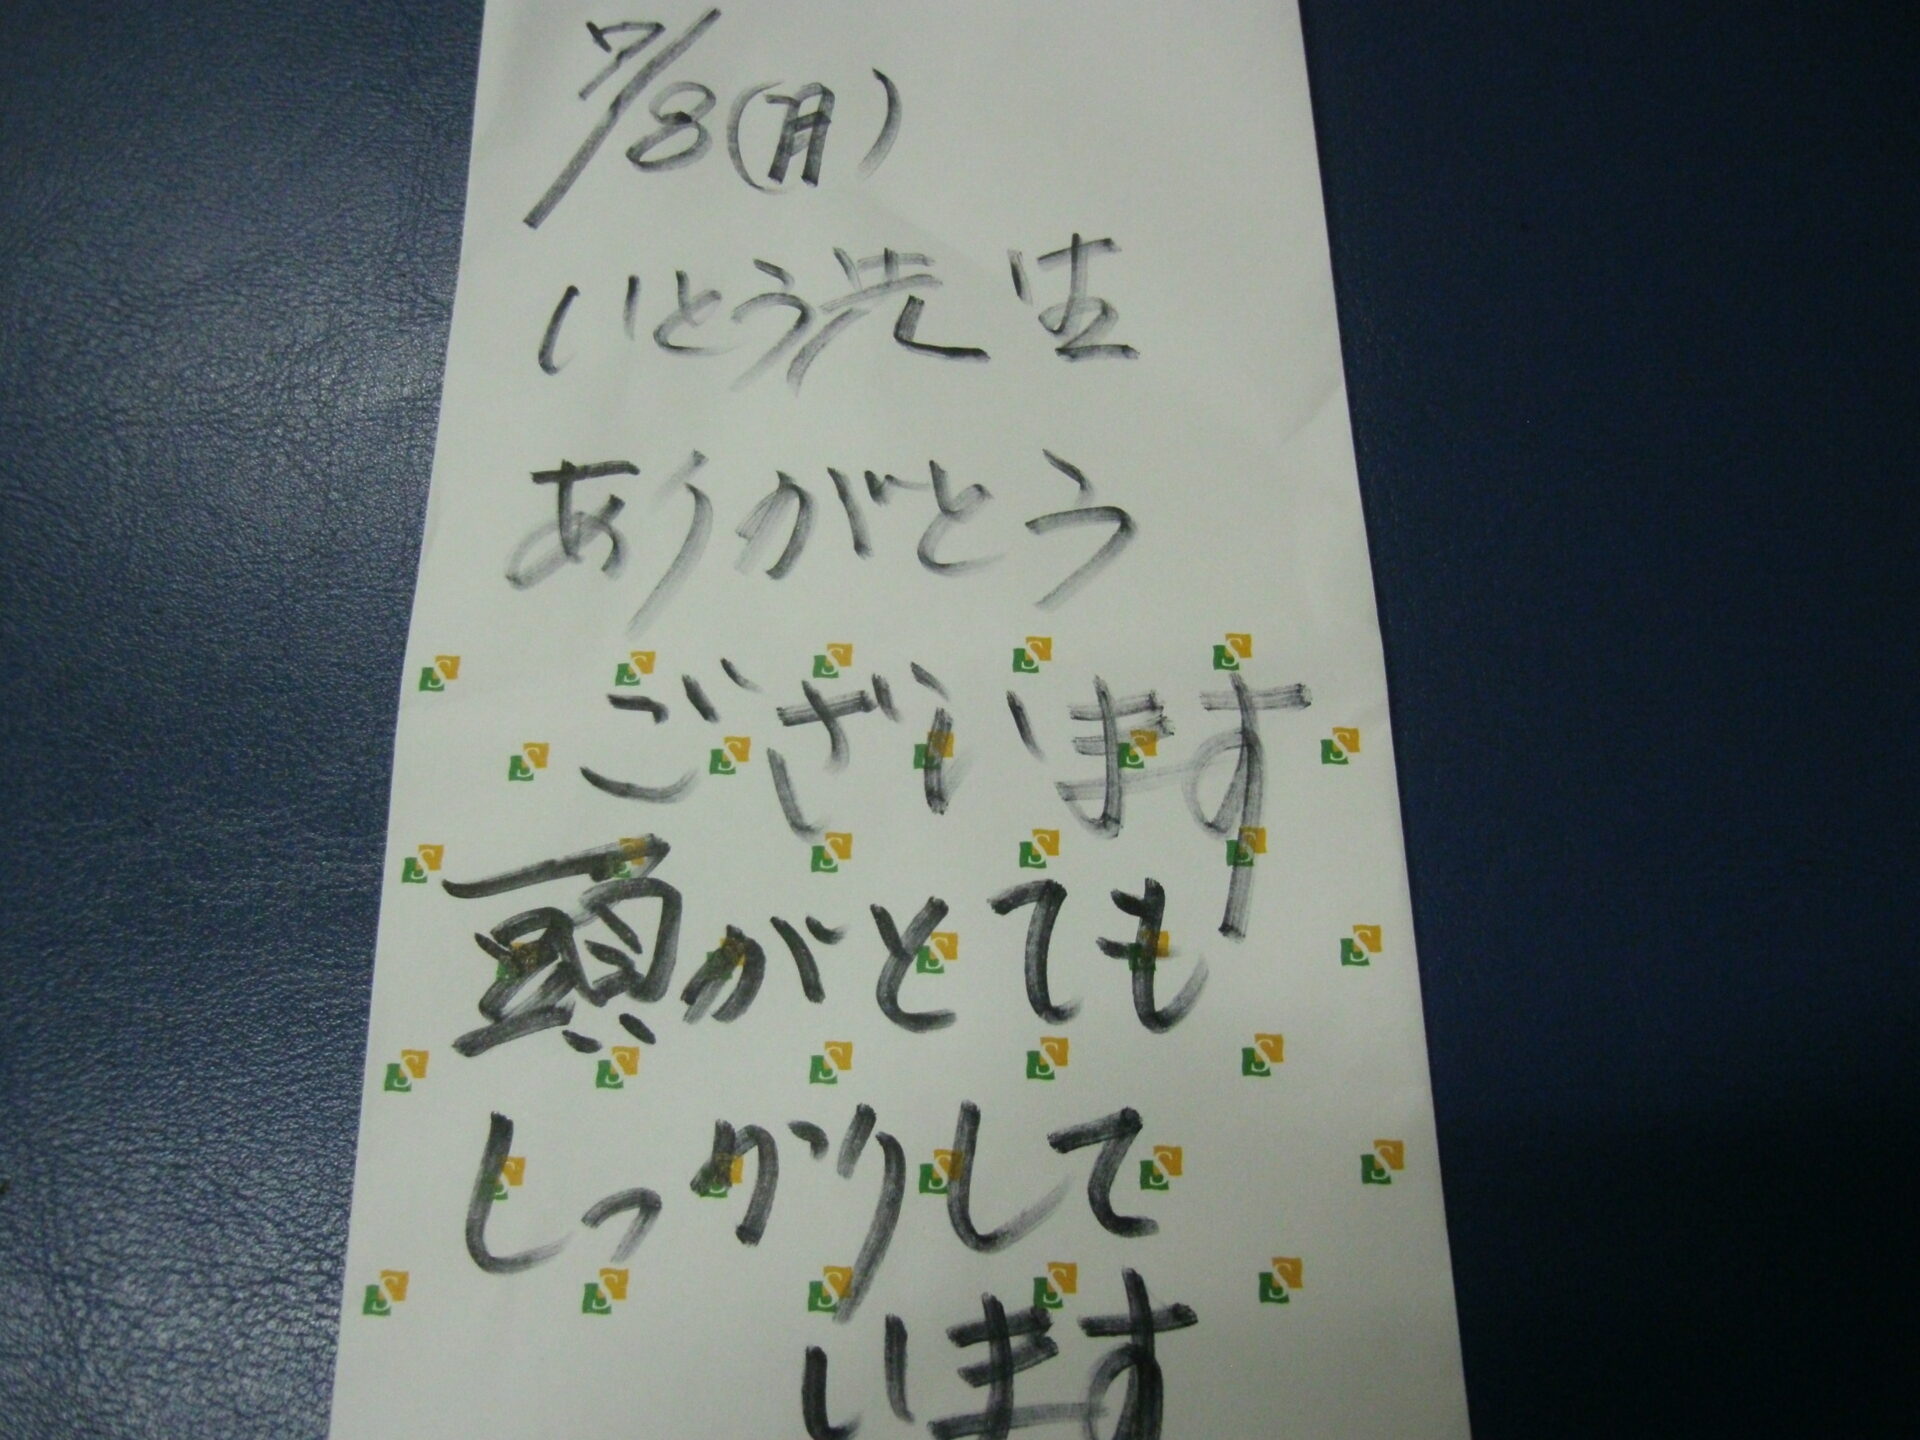 7/8(月)
いとう先生
ありがとう
ございます
頭がとても
しっかりして
います